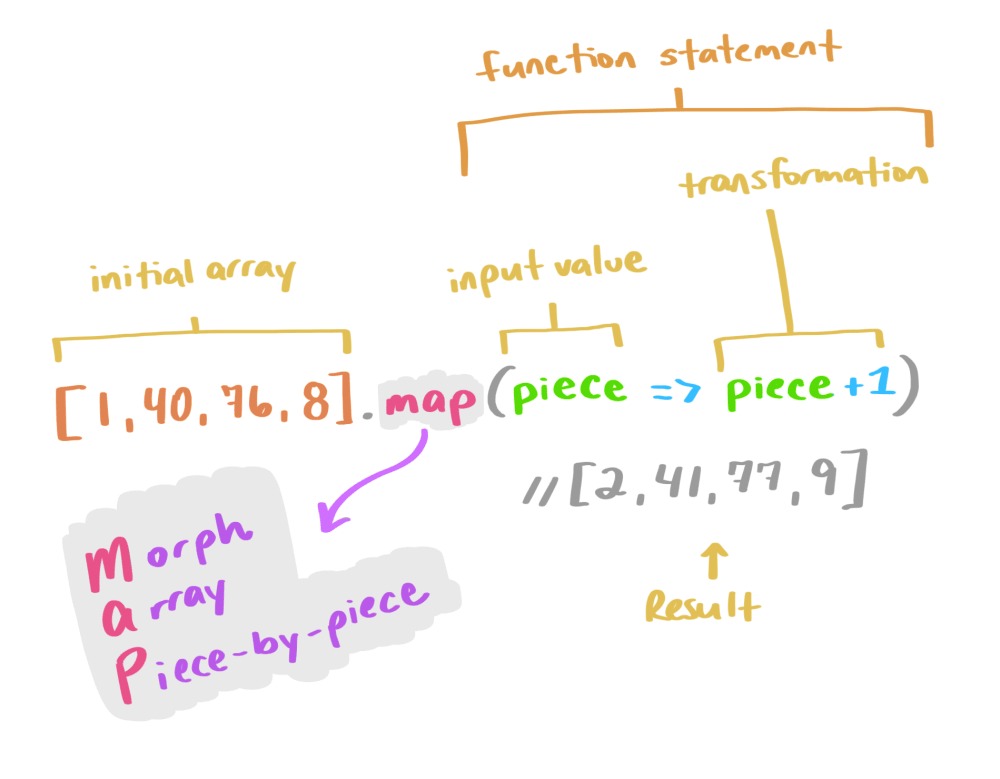 function statement
transformation
initial array
input value
[1, 40, 76, 8].map(piece => piece +1)
//[2, 41, 77, 9]
Morph
array
Piece-by-piece
Result